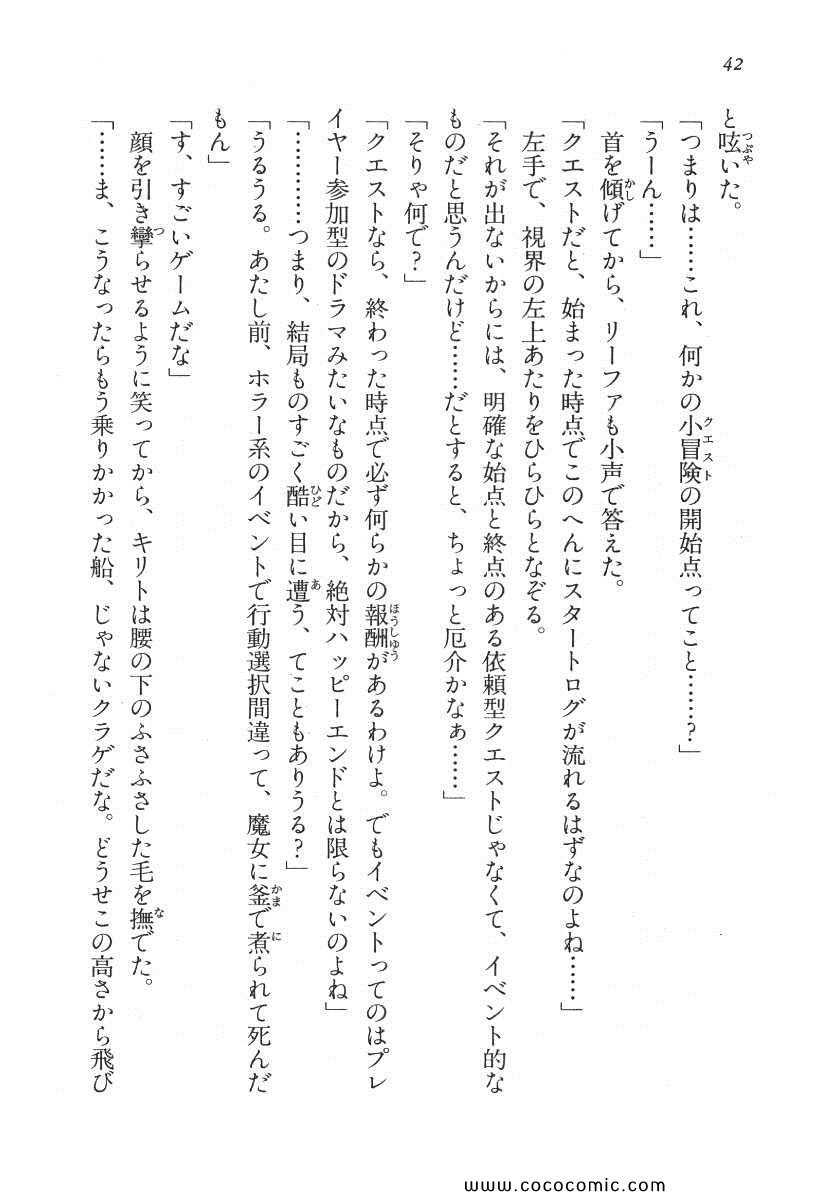 42
と呟いた。
「つまりは……これ、何かの小冒険の開始点ってこと……？」
「うーん……」
首を傾げてから、リーファも小声で答えた。
「クエストだと、始まった時点でこのへんにスタートログが流れるはずなのよね……」
左手で、視界の左上あたりをひらひらとなぞる。
「それが出ないからには、明確な始点と終点のある依頼型クエストじゃなくて、イベント的な
ものだと思うんだけど……だとすると、ちょっと厄介かなぁ……」
「そりゃ何で？」
「クエストなら、終わった時点で必ず何らかの報酬があるわけよ。でもイベントってのはプレ
イヤー参加型のドラマみたいなものだから、絶対ハッピーエンドとは限らないのよね」
「…………つまり、結局ものすごく酷い目に遭う、てこともありうる？」
「うるうる。あたし前、ホラー系のイベントで行動選択間違って、魔女に釜で煮られて死んだ
もん」
「す、すごいゲームだな」
顔を引き攣らせるように笑ってから、キリトは腰の下のふさふさした毛を撫でた。
「……ま、こうなったらもう乗りかかった船、じゃないクラゲだな。どうせこの高さから飛び
www.cococomic.com/